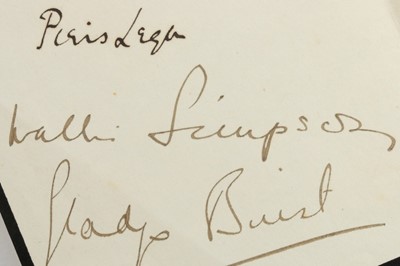 Piers Legh
Wallis Simpson
Gladys Buist